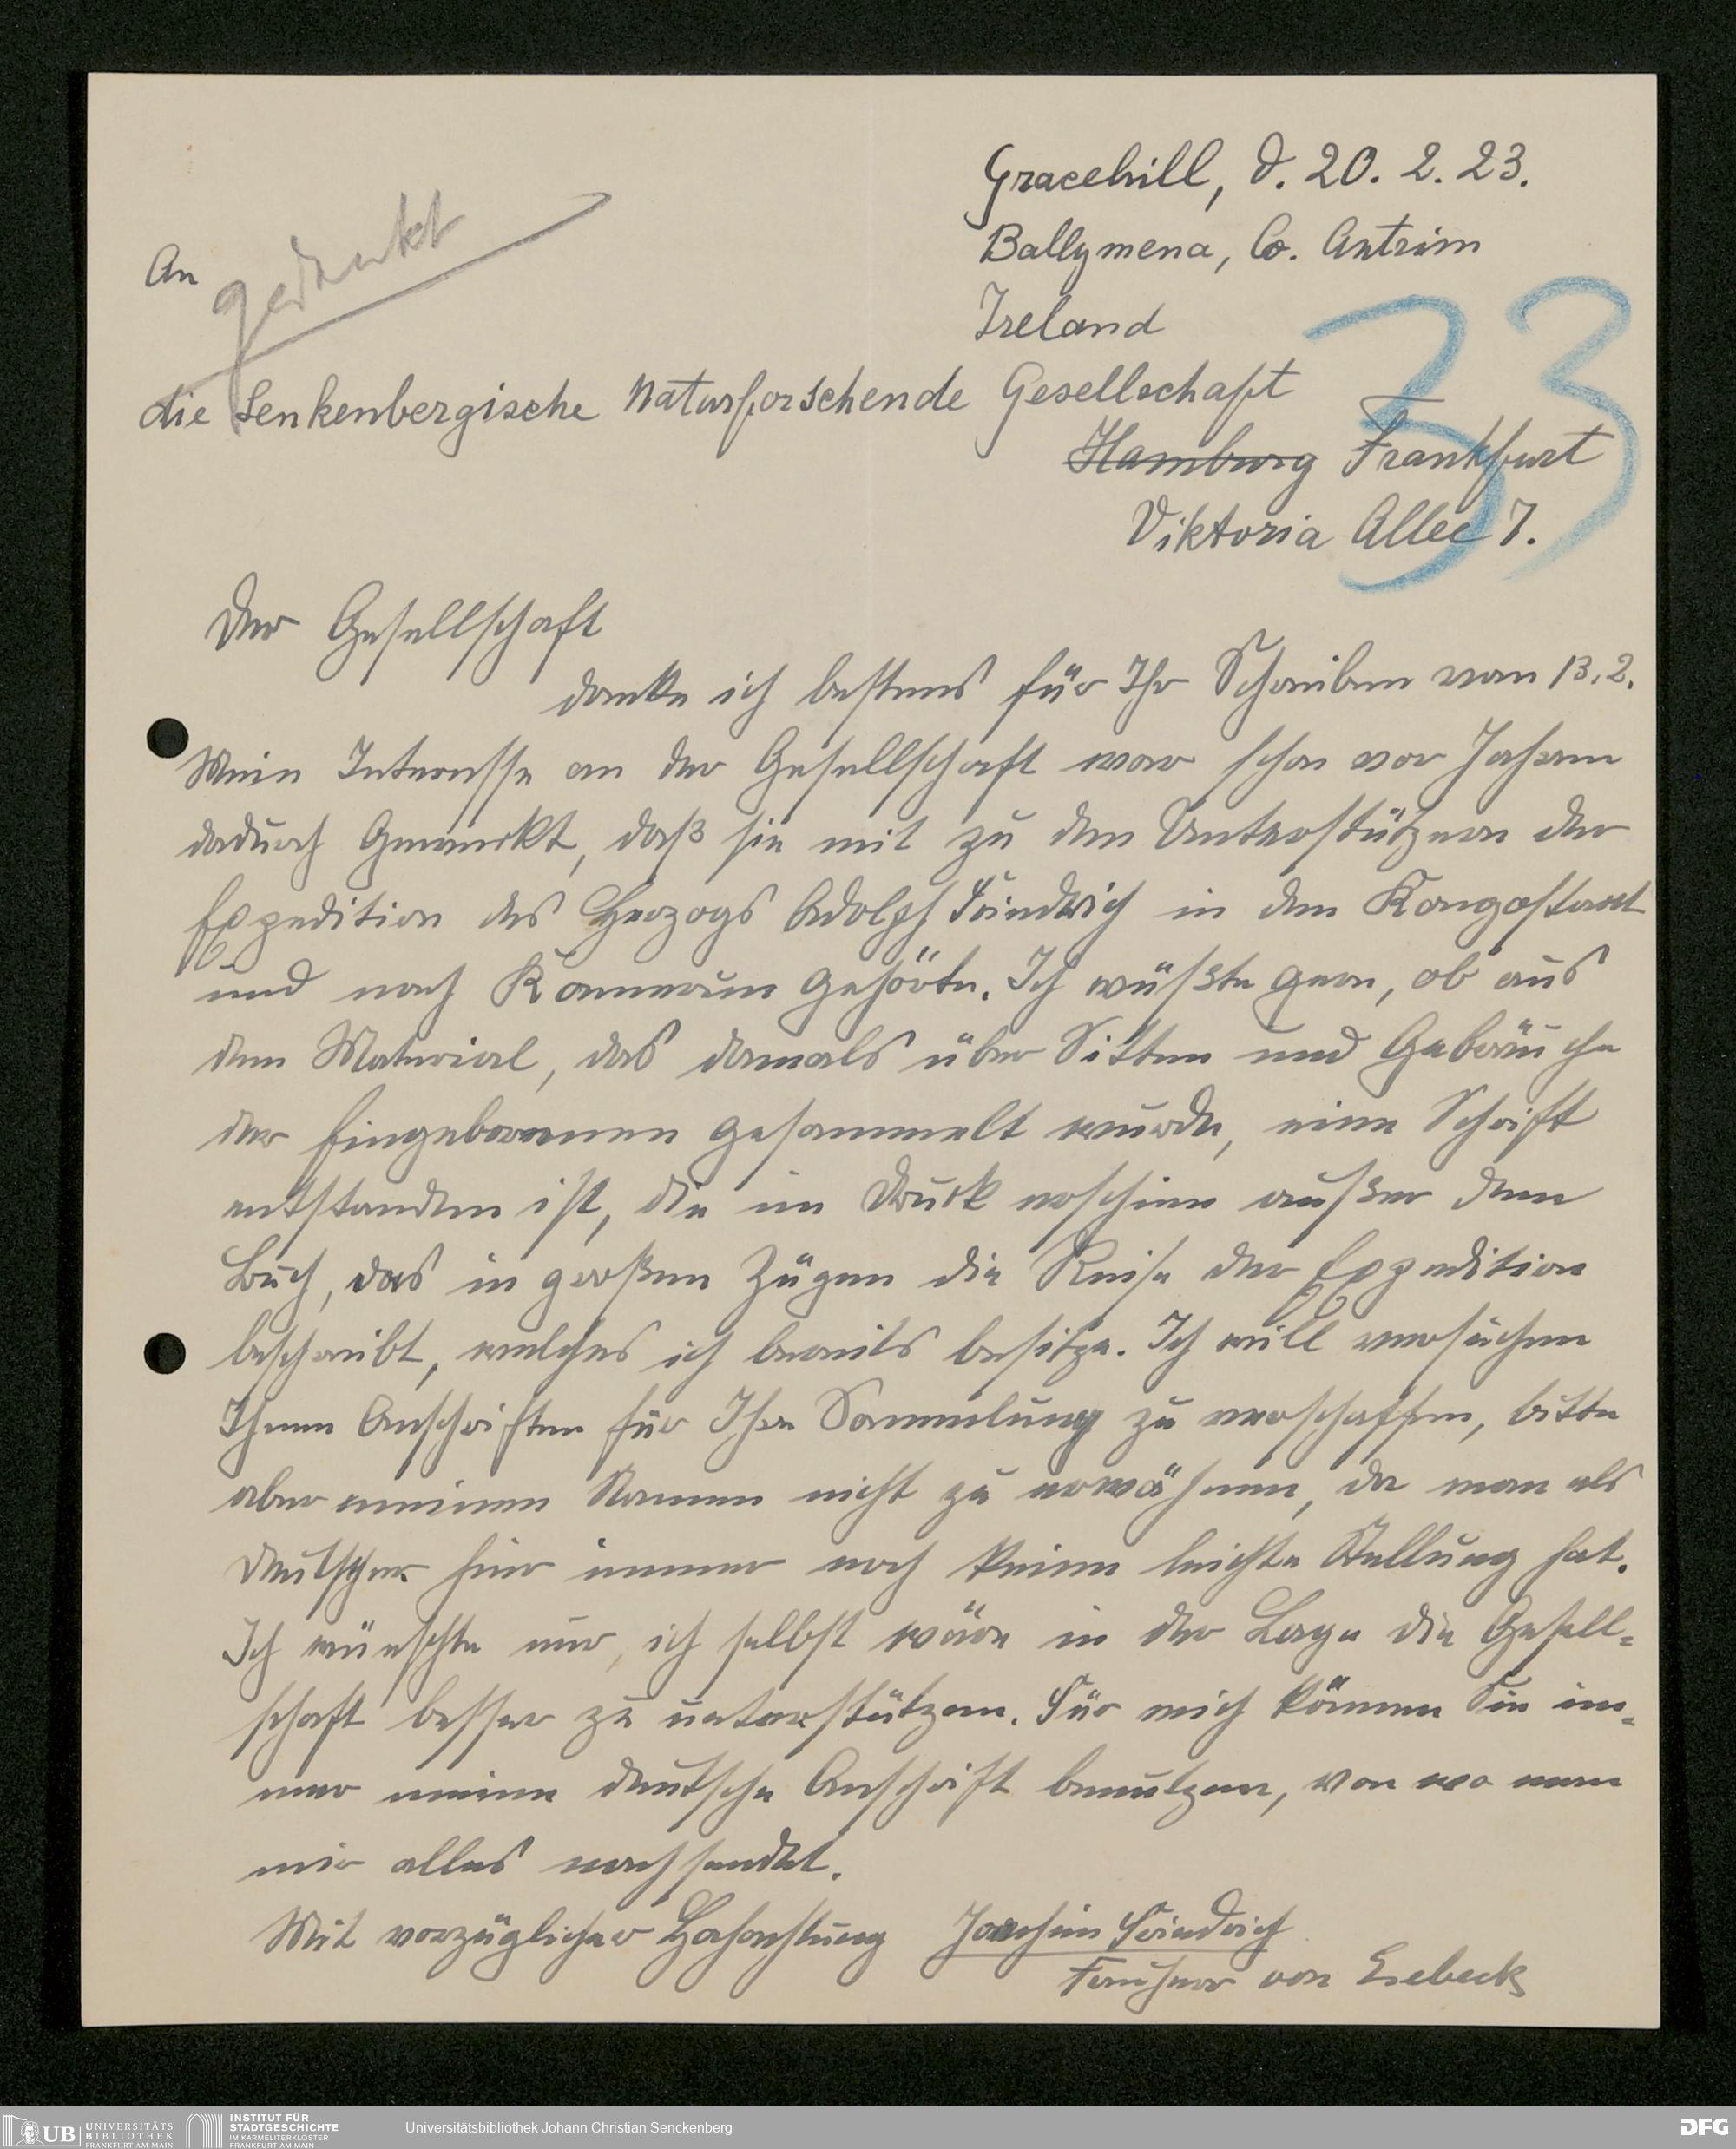 Gracehill, d. 20. 2. 23.
Ballymena, Co. Antrim
Ireland
An
gedankt
33
die Senkenbergische Naturforschende Gesellschaft
Hamburg Frankfurt
Viktoria Allee 7.
Der Gesellschaft
danke ich bestens für Ihr Schreiben vom 13.2.
Mein Interesse an der Gesellschaft war schon vor Jahren
dadurch geweckt, daß sie mit zu den Unterstützern der
Expedition des Herzogs Adolph Friedrich in den Kongostaat
und nach Kamerun gehörte. Ich wüßte gern, ob aus
dem Material, das damals über Sitten und Gebräuche
der Eingeborenen gesammelt wurde, eine Schrift
entstanden ist, die im Druck erschien außer dem
Buch, das in großen Zügen die Reise der Expedition
beschreibt, welches ich bereits besitze. Ich will versuchen
Ihnen Anschriften für Ihre Sammlung zu verschaffen, bitte
aber meinen Namen nicht zu erwähnen, da man als
Deutscher hier immer noch keine leichte Stellung hat.
Ich wünschte nur, ich selbst wäre in der Lage die Gesell=
schaft besser zu unterstützen. Für mich können Sie im=
mer meine deutsche Anschrift benutzen, von wo man
mir alles nachsendet.
Mit vorzüglicher Hochachtung Joachim Friedrich
Freiherr von Esebeck
UB UNIVERSITÄTS
BIBLIOTHEK
FRANKFURT AM MAIN
INSTITUT FÜR
STADTGESCHICHTE
IM KARMELITERKLOSTER
FRANKFURT AM MAIN
Universitätsbibliothek Johann Christian Senckenberg
DFG